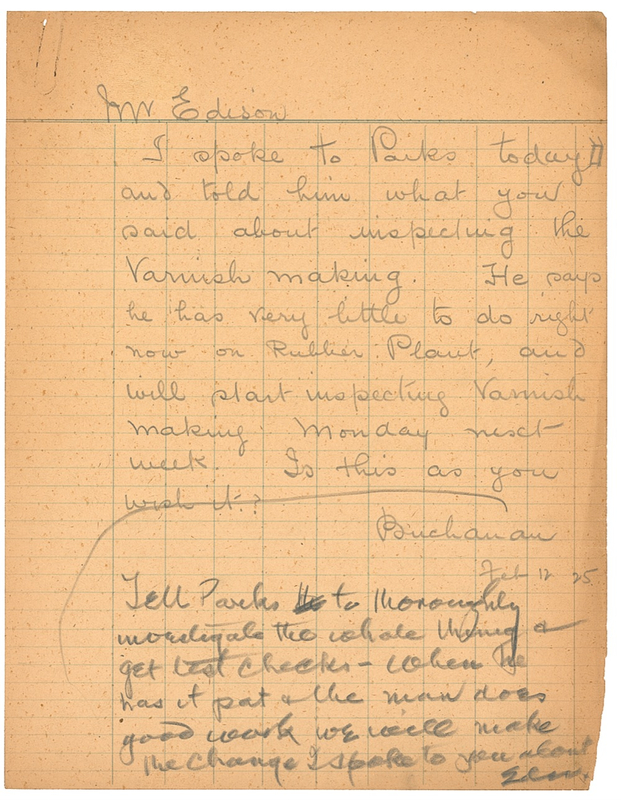 Mr Edison
I spoke to Parks today
and told him what you
said about inspecting the
Varnish making. He says
he has very little to do right
now on Rubber Plant, and
will start inspecting Varnish
making Monday next
week. Is this as you
wish it?
Buchanan
Feb 12 25
Tell Parks to thoroughly
investigate the whole thing &
get test checks - When he
has it pat & the man does
good work we will make
the change I spoke to you about